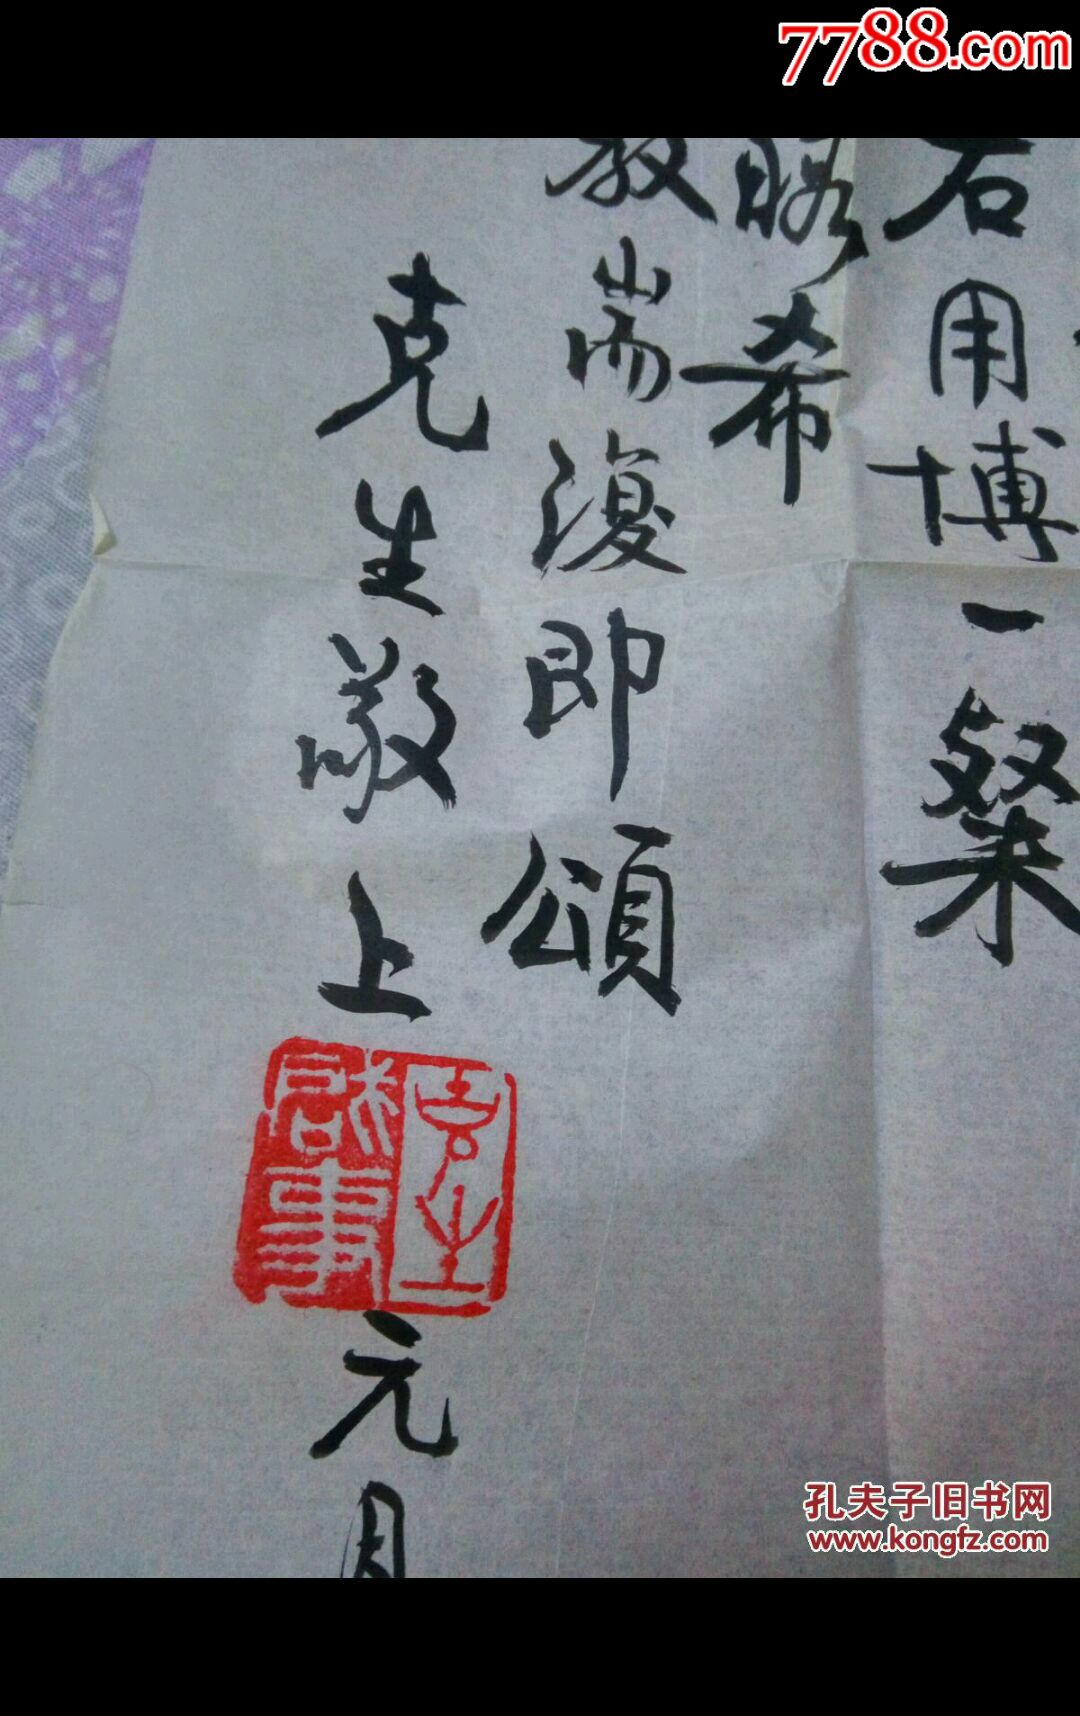 7788.com
石用博一粲
希
教耑復即頌
克生敬上
克生
啟事
元月
孔夫子旧书网
www.kongfz.com